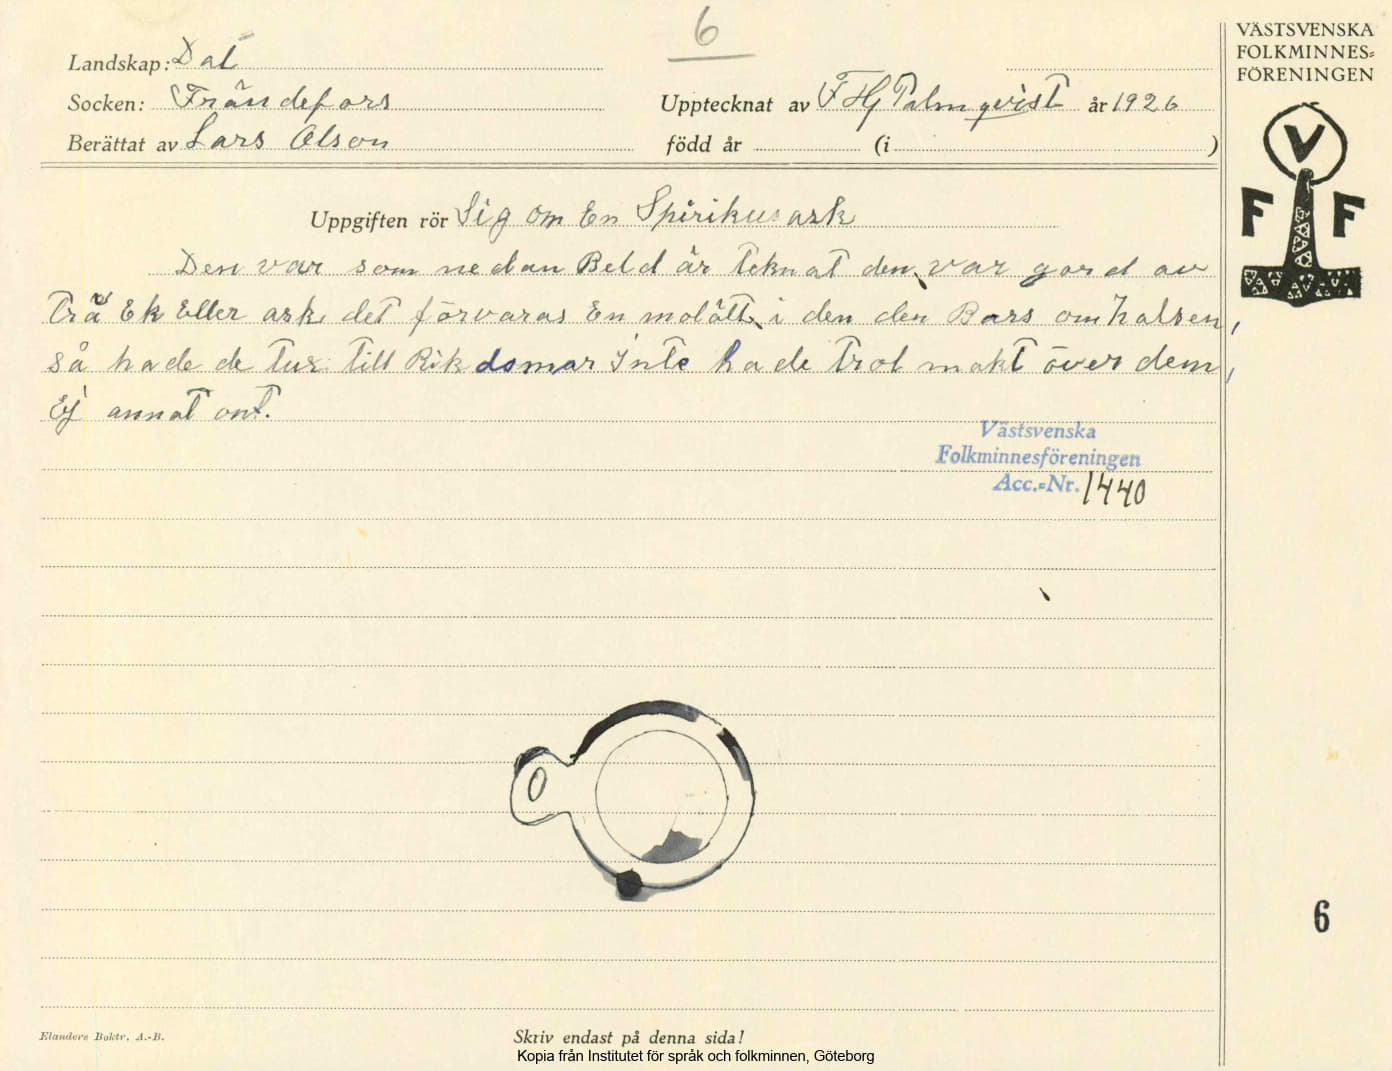 6
VÄSTSVENSKA
FOLKMINNES=
FÖRENINGEN
Landskap: Dal
Socken: Frändefors
Upptecknat av F Hj Palmqvist år 1926
Berättat av Lars Olson
född år (i )
V
F F
Uppgiften rör Sig om En Spirikusask
Den var som nedan Beld är teknat den var gord av
Trä Ek Eller ask det förvaras En molätt i den den Bars om halsen,
så hade de tur till Rikdomar Inte hade trol makt över dem,
Ej annat ont.
Västsvenska
Folkminnesföreningen
Acc.=Nr. 1440
6
Elanders Boktr. A.-B.
Skriv endast på denna sida!
Kopia från Institutet för språk och folkminnen, Göteborg